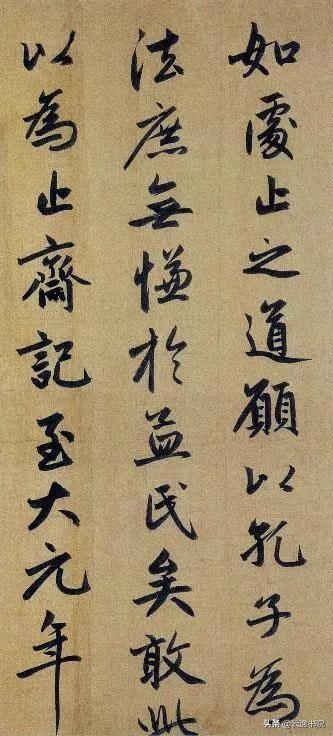 如處止之道願以孔子為
法庶無慊於益民矣敢此
以為止齋記至大元年
头条